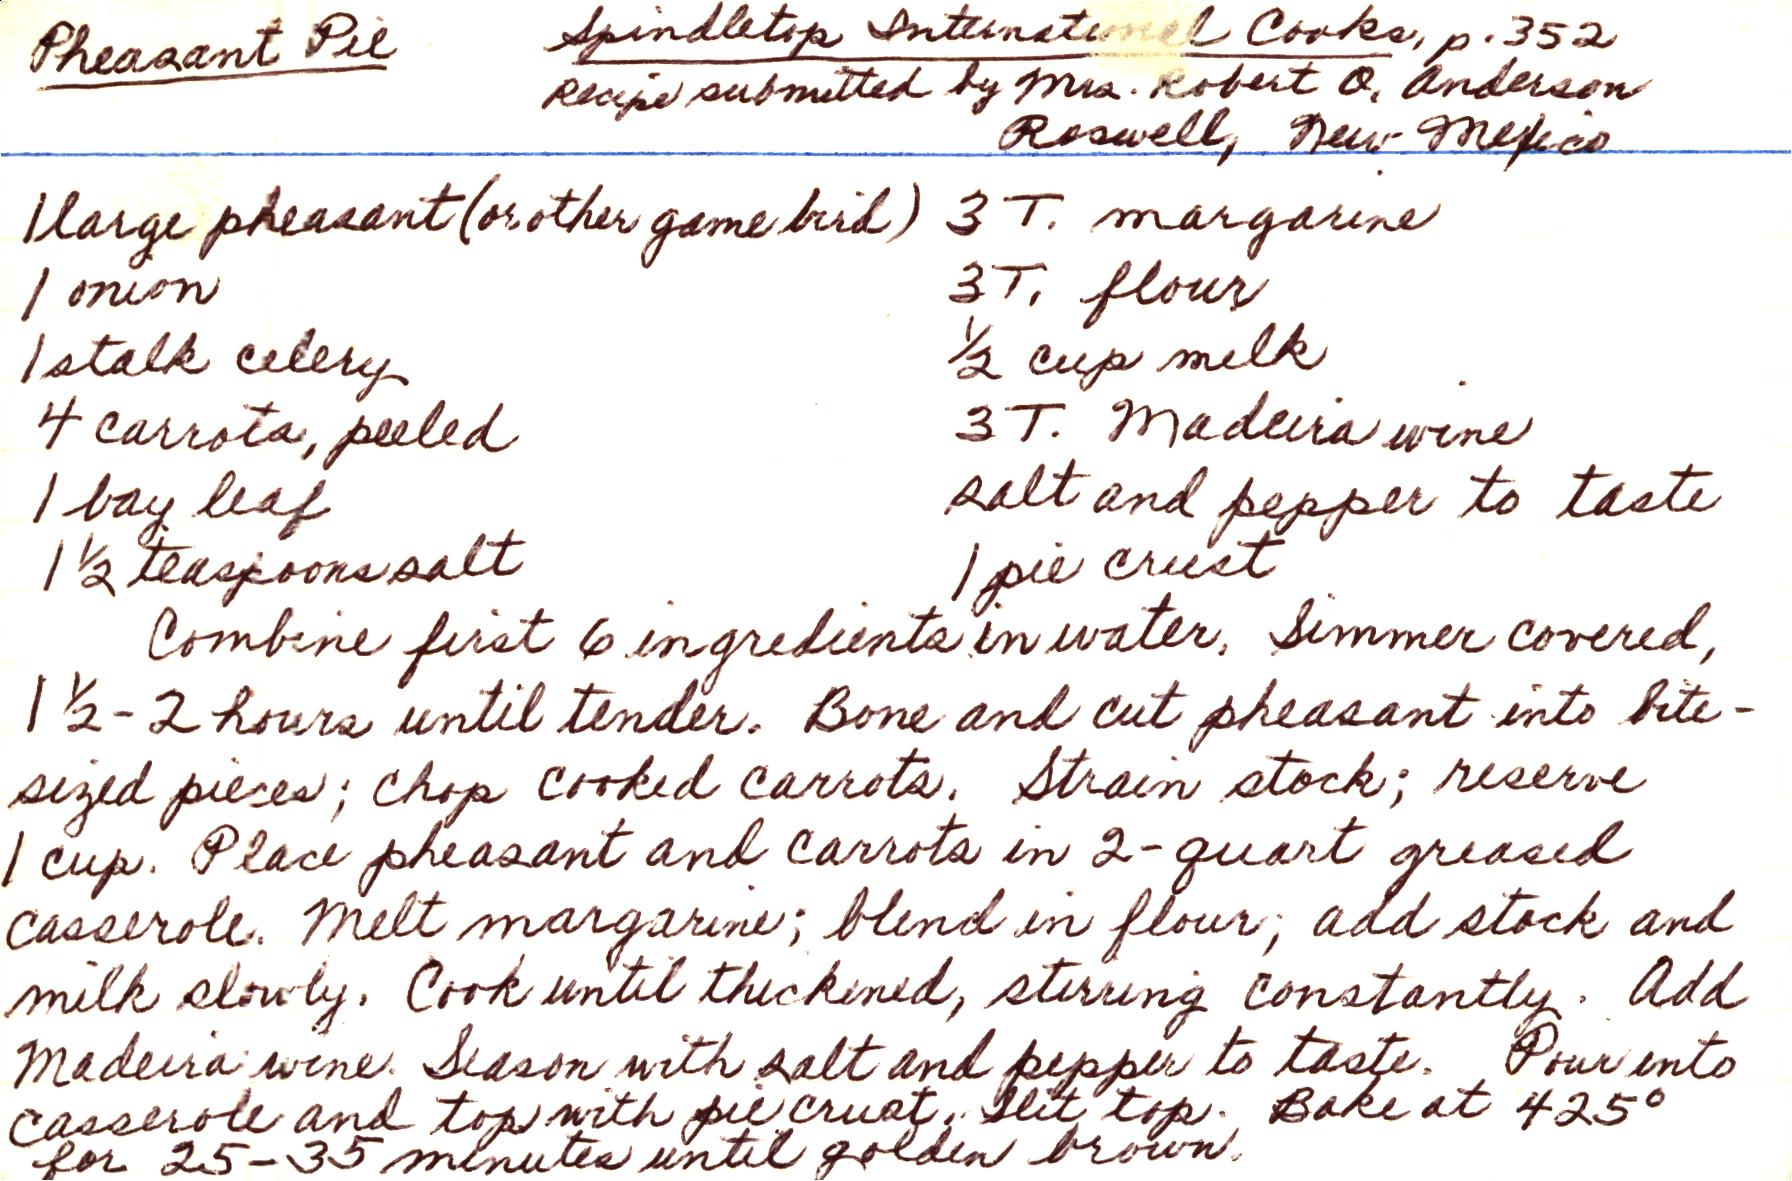 Pheasant Pie
Spindletop International Cooks, p. 352
Recipe submitted by Mrs. Robert O. Anderson
Roswell, New Mexico
1 large pheasant (or other game bird)
1 onion
1 stalk celery
4 carrots, peeled
1 bay leaf
1 ½ teaspoons salt
3 T. margarine
3 T. flour
½ cup milk
3 T. Madeira wine
salt and pepper to taste
1 pie crust
Combine first 6 ingredients in water. Simmer covered,
1 ½ - 2 hours until tender. Bone and cut pheasant into bite-
sized pieces; chop cooked carrots. Strain stock; reserve
1 cup. Place pheasant and carrots in 2-quart greased
casserole. Melt margarine; blend in flour; add stock and
milk slowly. Cook until thickened, stirring constantly. Add
Madeira wine. Season with salt and pepper to taste. Pour into
casserole and top with pie crust. Slit top. Bake at 425°
for 25-35 minutes until golden brown.